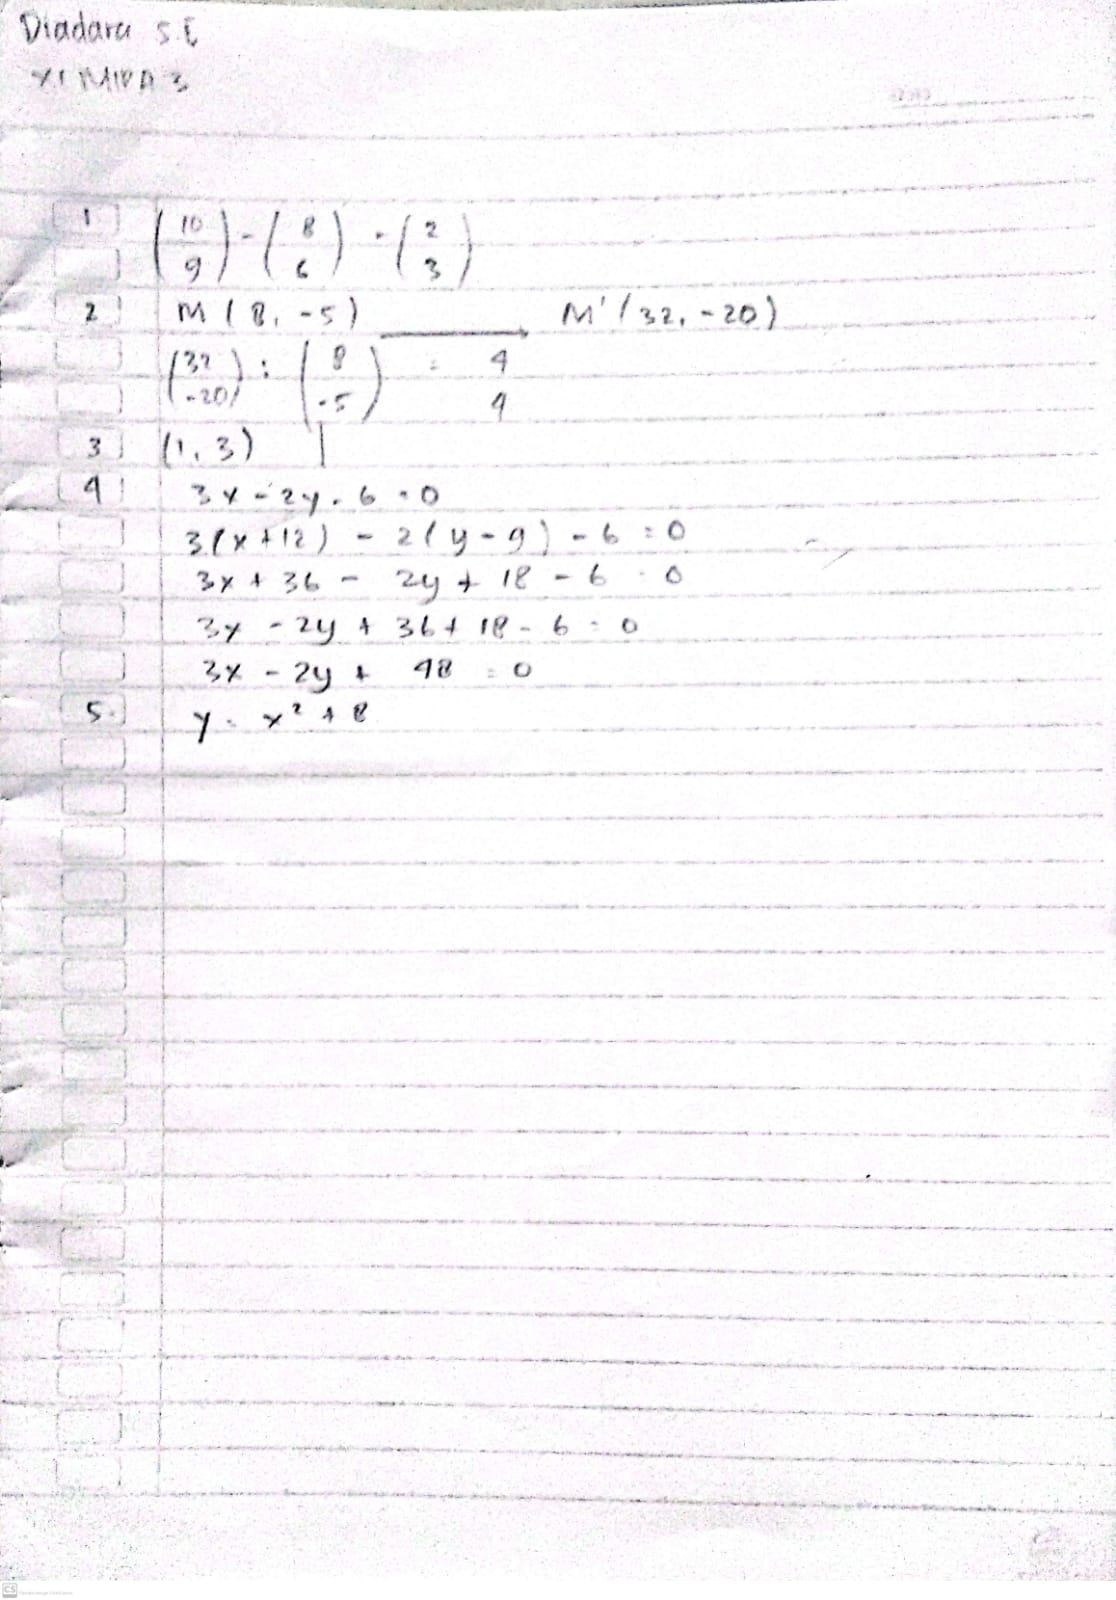 Diadara S.E
XI MIPA 3
1 (10 9) - (8 6) = (2 3)
2 M (8, -5) → M' (32, -20)
(32 -20) : (8 -5) = 4 4
3 (1, 3)
4 3x - 2y - 6 = 0
3(x + 12) - 2(y - 9) - 6 = 0
3x + 36 - 2y + 18 - 6 = 0
3x - 2y + 36 + 18 - 6 = 0
3x - 2y + 48 = 0
5. y = x² + 8
CS